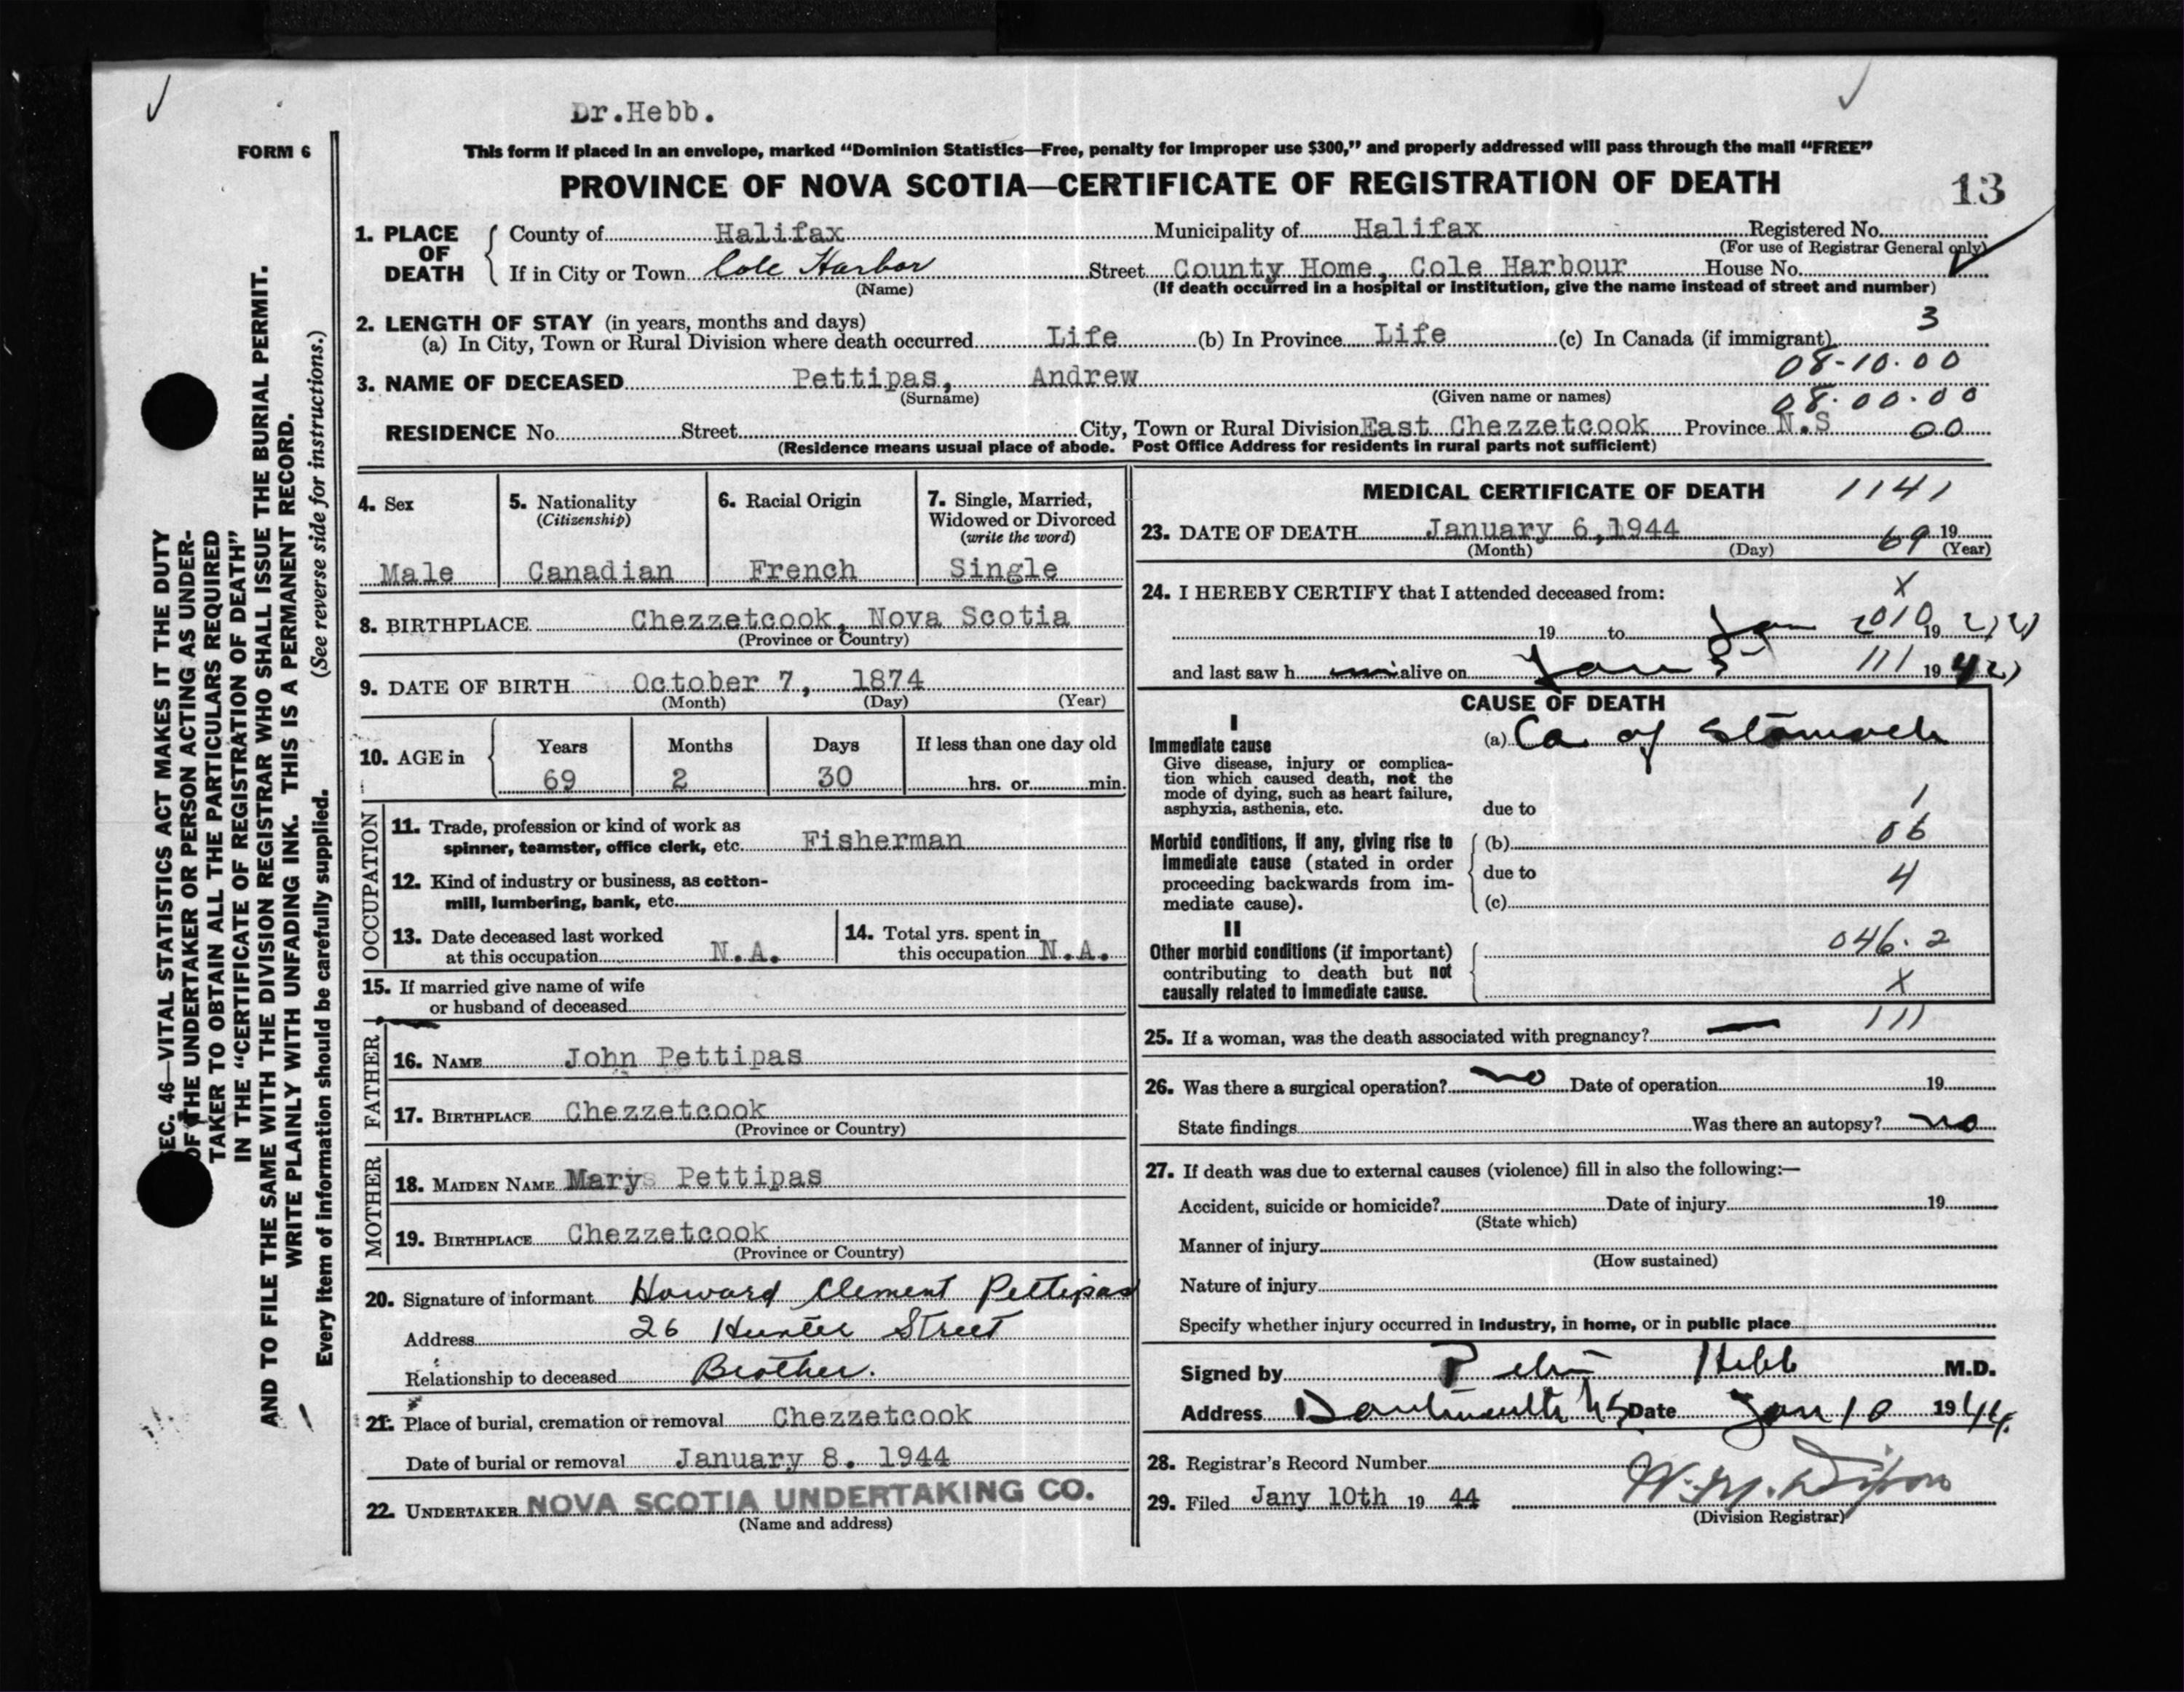 Dr.Hebb.
FORM 6
This form if placed in an envelope, marked “Dominion Statistics—Free, penalty for improper use $300,” and properly addressed will pass through the mail “FREE”
PROVINCE OF NOVA SCOTIA—CERTIFICATE OF REGISTRATION OF DEATH
13
SEC. 46—VITAL STATISTICS ACT MAKES IT THE DUTY
OF THE UNDERTAKER OR PERSON ACTING AS UNDER-
TAKER TO OBTAIN ALL THE PARTICULARS REQUIRED
IN THE “CERTIFICATE OF REGISTRATION OF DEATH”
AND TO FILE THE SAME WITH THE DIVISION REGISTRAR WHO SHALL ISSUE THE BURIAL PERMIT.
WRITE PLAINLY WITH UNFADING INK. THIS IS A PERMANENT RECORD.
Every item of information should be carefully supplied. (See reverse side for instructions.)
1. PLACE OF DEATH
County of Halifax Municipality of Halifax Registered No.
(For use of Registrar General only)
If in City or Town Cole Harbor Street County Home, Cole Harbour House No.
(Name) (If death occurred in a hospital or institution, give the name instead of street and number)
2. LENGTH OF STAY (in years, months and days) 3
(a) In City, Town or Rural Division where death occurred Life (b) In Province Life (c) In Canada (if immigrant)
08-10.00
3. NAME OF DECEASED Pettipas, Andrew
(Surname) (Given name or names) 08.00.00
RESIDENCE No. Street City, Town or Rural Division East Chezzetcook Province N.S 00
(Residence means usual place of abode. Post Office Address for residents in rural parts not sufficient)
4. Sex
Male
5. Nationality
(Citizenship)
Canadian
6. Racial Origin
French
7. Single, Married,
Widowed or Divorced
(write the word)
Single
8. BIRTHPLACE Chezzetcook, Nova Scotia
(Province or Country)
9. DATE OF BIRTH October 7, 1874
(Month) (Day) (Year)
10. AGE in Years Months Days If less than one day old
69 2 30 hrs. or min.
OCCUPATION
11. Trade, profession or kind of work as
spinner, teamster, office clerk, etc. Fisherman
12. Kind of industry or business, as cotton-
mill, lumbering, bank, etc.
13. Date deceased last worked
at this occupation N.A.
14. Total yrs. spent in
this occupation N.A.
15. If married give name of wife
or husband of deceased
FATHER
16. NAME John Pettipas
17. BIRTHPLACE Chezzetcook
(Province or Country)
MOTHER
18. MAIDEN NAME Mary Pettipas
19. BIRTHPLACE Chezzetcook
(Province or Country)
20. Signature of informant Howard Clement Pettipas
Address 26 Hunter Street
Relationship to deceased Brother.
21. Place of burial, cremation or removal Chezzetcook
Date of burial or removal January 8. 1944
22. UNDERTAKER NOVA SCOTIA UNDERTAKING CO.
(Name and address)
MEDICAL CERTIFICATE OF DEATH 1141
23. DATE OF DEATH January 6,1944 69 19
(Month) (Day) (Year)
24. I HEREBY CERTIFY that I attended deceased from: X
19 to Jan 2010 19
and last saw h alive on Jan 5 111 19 4
CAUSE OF DEATH
I
Immediate cause
Give disease, injury or complica-
tion which caused death, not the
mode of dying, such as heart failure,
asphyxia, asthenia, etc.
(a) Ca of Stomach
due to 1
Morbid conditions, if any, giving rise to
immediate cause (stated in order
proceeding backwards from im-
mediate cause).
(b) 06
due to 4
(c)
II
Other morbid conditions (if important)
contributing to death but not
causally related to immediate cause.
046.2
X
25. If a woman, was the death associated with pregnancy? — 111
26. Was there a surgical operation? no Date of operation 19
State findings Was there an autopsy? no
27. If death was due to external causes (violence) fill in also the following:—
Accident, suicide or homicide? Date of injury 19
(State which)
Manner of injury
(How sustained)
Nature of injury
Specify whether injury occurred in industry, in home, or in public place
Signed by Hebb M.D.
Address Dartmouth NS Date Jan 10 1944.
28. Registrar’s Record Number
29. Filed Jany 10th 19 44
(Division Registrar)